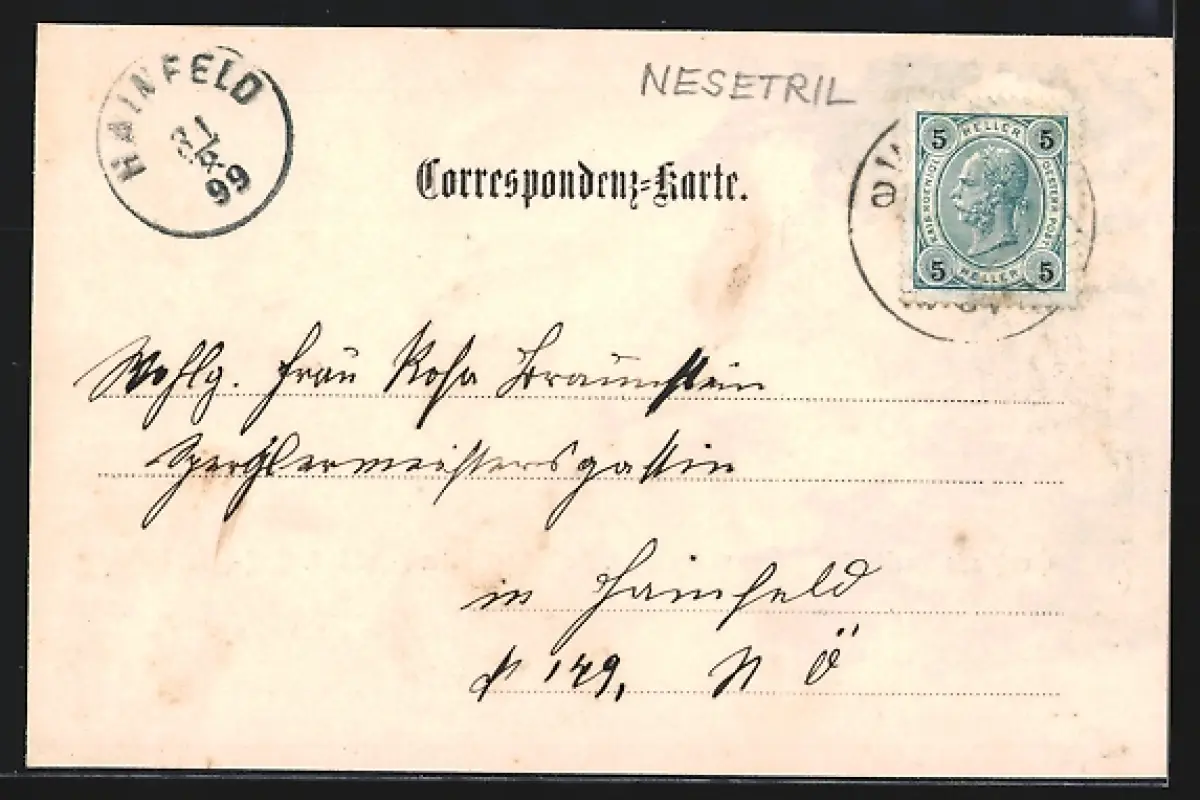 HAINFELD
31/8
99
NESETRIL
Correspondenz-Karte.
5 HELLER 5
KAIS. KOENIGL. OESTERR. POST.
5 HELLER 5
Wohlg. Frau Rosa Braunstein
Spenglermeistersgattin
in Hainfeld
№ 149, N Ö